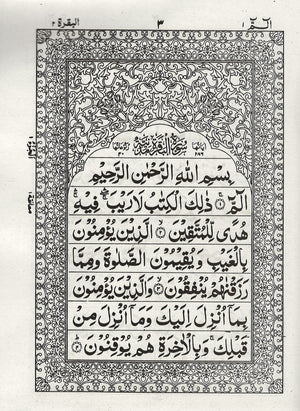 البقرة ٢ ٣ الٓمّٓ ١
اٰیاتہا ٢٨٦ سُوْرَةُ الْبَقَرَةِ مَدَنِيَّةٌ رکوعاتہا ٤٠
بِسْمِ اللهِ الرَّحْمٰنِ الرَّحِيْمِ
الٓمّٓ ۝١ ذٰلِكَ الْكِتٰبُ لَا رَيْبَ ۛ فِيْهِ ۛ
هُدًى لِّلْمُتَّقِيْنَ ۝٢ الَّذِيْنَ يُؤْمِنُوْنَ
بِالْغَيْبِ وَيُقِيْمُوْنَ الصَّلٰوةَ وَمِمَّا
رَزَقْنٰهُمْ يُنْفِقُوْنَ ۝٣ وَالَّذِيْنَ يُؤْمِنُوْنَ
بِمَآ اُنْزِلَ اِلَيْكَ وَمَآ اُنْزِلَ مِنْ
قَبْلِكَ ۚ وَبِالْاٰخِرَةِ هُمْ يُوْقِنُوْنَ ۝٤